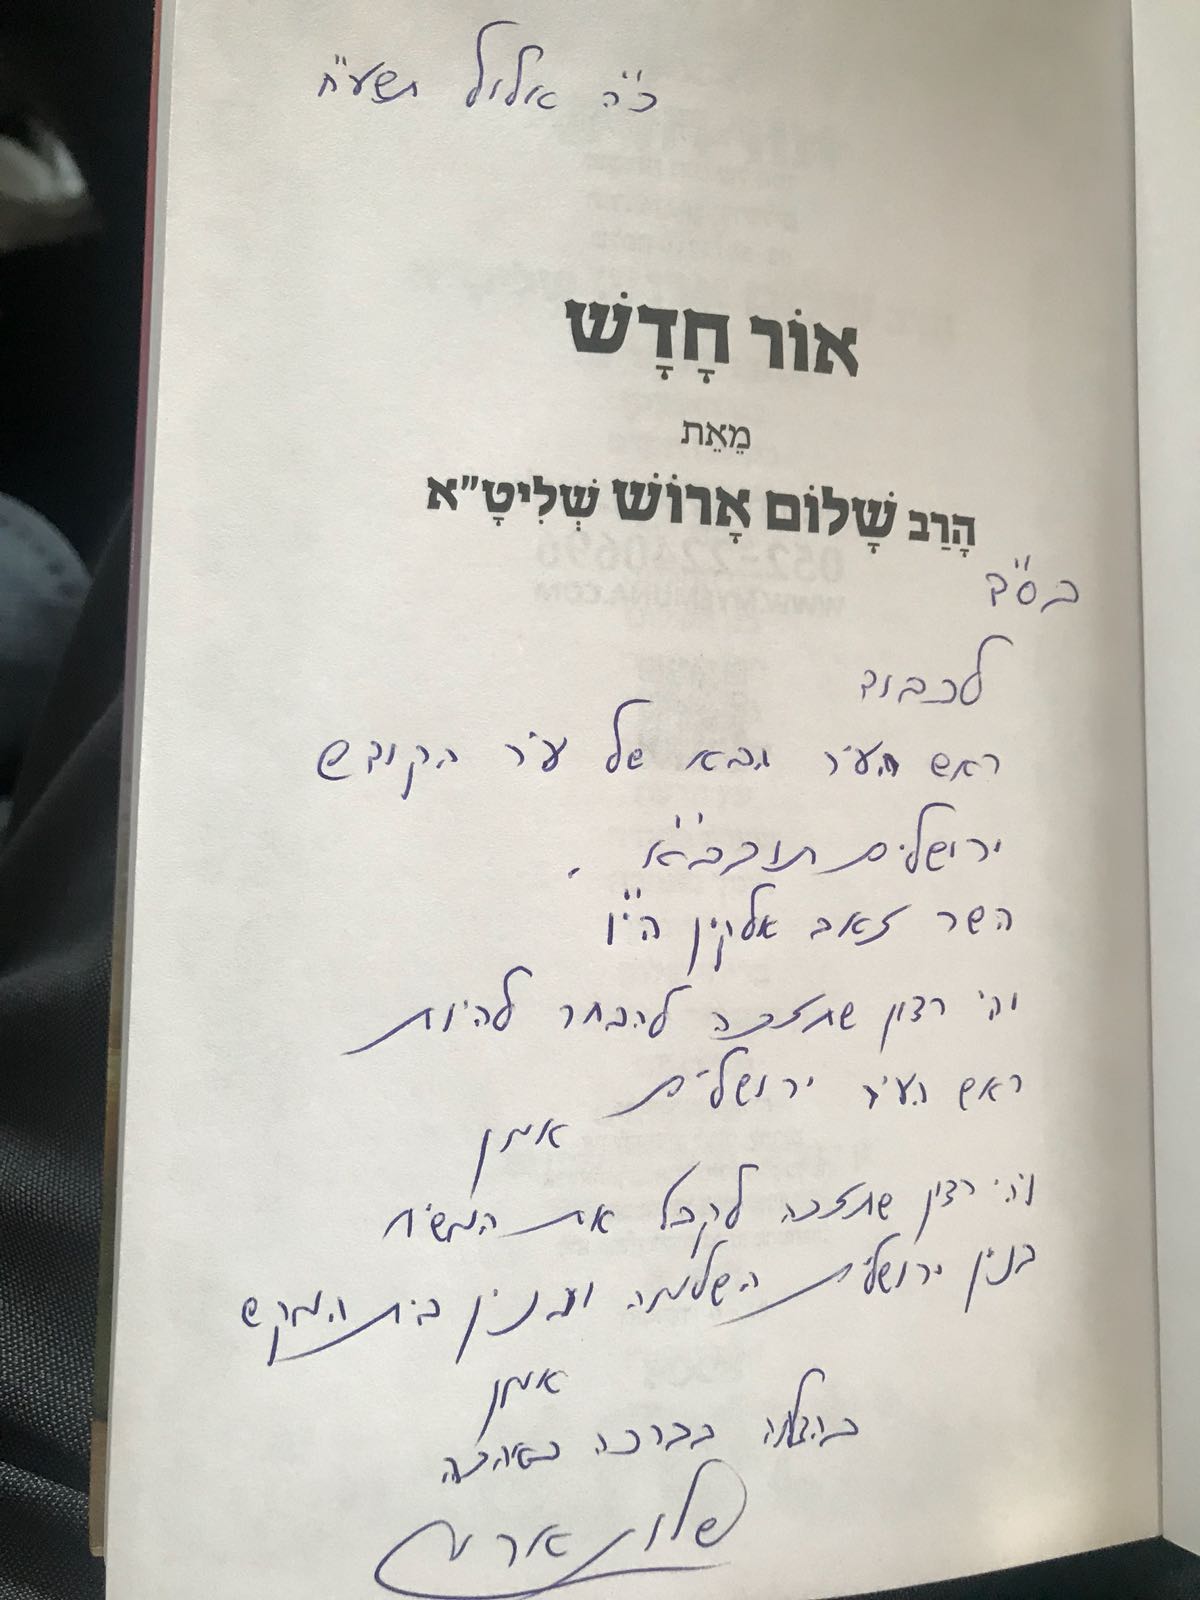 כ"ה אלול תשע"ח
אוֹר חָדָשׁ
מֵאֵת
הָרַב שָׁלוֹם אָרוּשׁ שְׁלִיטָ"א
בס"ד
לכבוד
ראש העיר הבא של עיר הקודש
ירושלים תובב"א.
השר זאב אלקין הי"ו
יהי רצון שתזכה להבחר להיות
ראש העיר ירושלים
אמן
ויהי רצון שתזכה לקבל את המשיח
בנין ירושלים השלמה ובנין בית המקדש
אמן
בהצלחה בברכה באהבה
שלום ארוש
052-2240696
WWW.MYEMUNA.COM